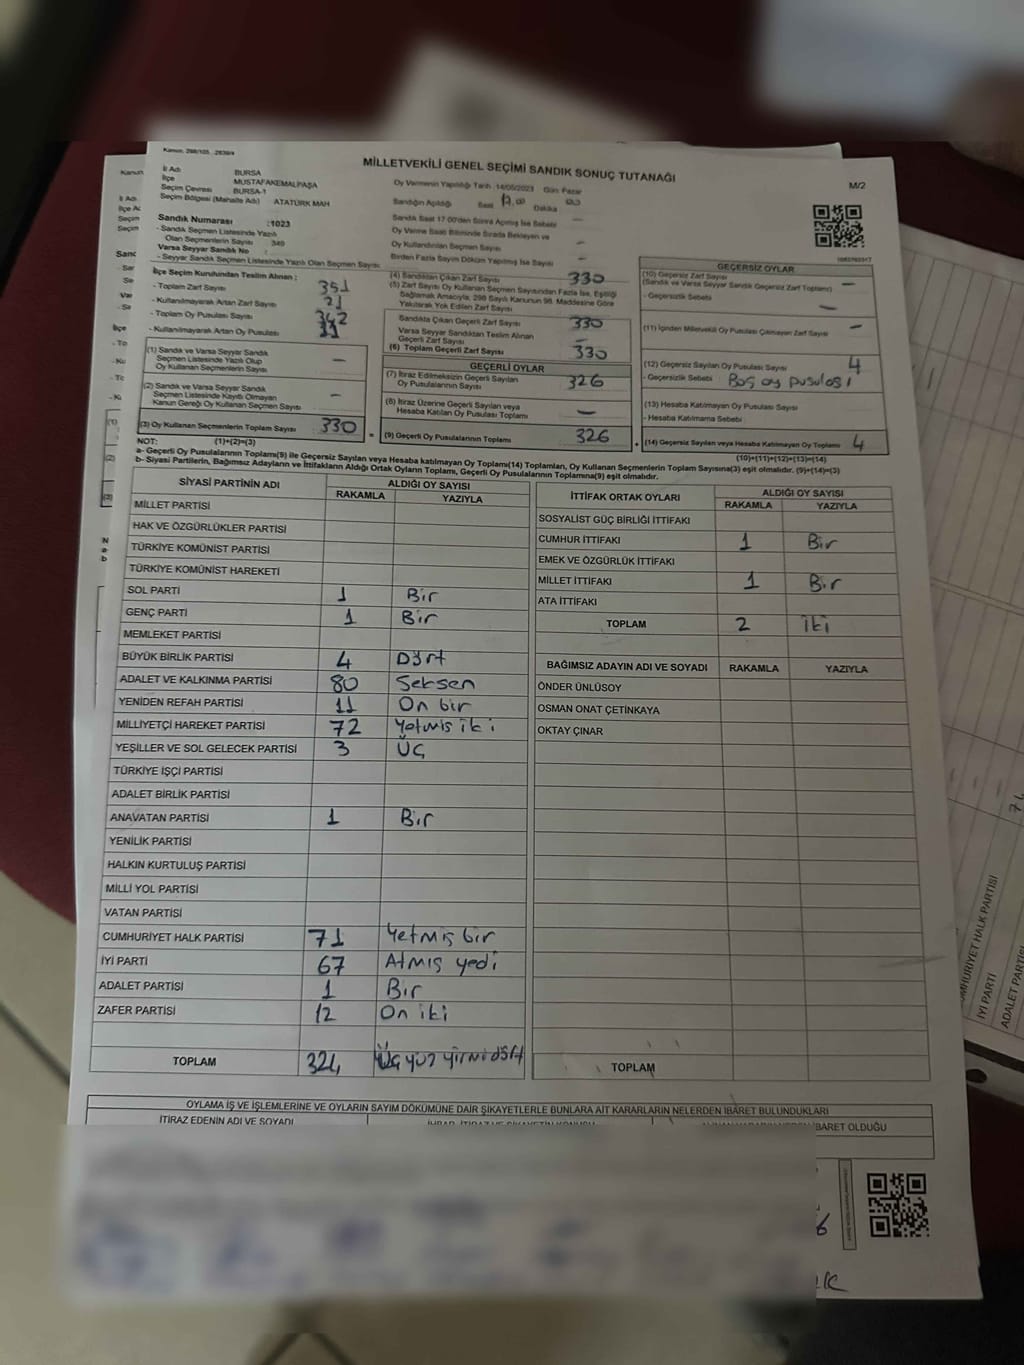 Kanun, 298/105
MİLLETVEKİLİ GENEL SEÇİMİ SANDIK SONUÇ TUTANAĞI
M/2
İl Adı BURSA
İlçe MUSTAFAKEMALPAŞA
Seçim Çevresi BURSA-1
Seçim Bölgesi (Mahalle Adı) ATATÜRK MAH
Sandık Numarası :1023
- Sandık Seçmen Listesinde Yazılı
Olan Seçmenlerin Sayısı : 349
Varsa Seyyar Sandık No :
- Seyyar Sandık Seçmen Listesinde Yazılı Olan Seçmen Sayısı:
Oy Vermenin Yapıldığı Tarih :14/05/2023 Gün: Pazar
Sandığın Açıldığı Saat 17.00 Dakika
Sandık Saat 17:00'den Sonra Açılmış İse Sebebi –
Oy Verme Saati Bitiminde Sırada Bekleyen ve
Oy Kullandırılan Seçmen Sayısı –
Birden Fazla Sayım Döküm Yapılmış İse Sayısı –
İlçe Seçim Kurulundan Teslim Alınan :
- Toplam Zarf Sayısı 351
- Kullanılmayarak Artan Zarf Sayısı 21
- Toplam Oy Pusulası Sayısı 342
- Kullanılmayarak Artan Oy Pusulası
(1) Sandık ve Varsa Seyyar Sandık
Seçmen Listesinde Yazılı Olup
Oy Kullanan Seçmenlerin Sayısı –
(2) Sandık ve Varsa Seyyar Sandık
Seçmen Listesinde Kayıtlı Olmayan
Kanun Gereği Oy Kullanan Seçmen Sayısı –
(3) Oy Kullanan Seçmenlerin Toplam Sayısı 330
(4) Sandıktan Çıkan Zarf Sayısı 330
(5) Zarf Sayısı Oy Kullanan Seçmen Sayısından Fazla İse, Eşitliği
Sağlamak Amacıyla, 298 Sayılı Kanunun 98. Maddesine Göre
Yakılarak Yok Edilen Zarf Sayısı –
Sandıkta Çıkan Geçerli Zarf Sayısı 330
Varsa Seyyar Sandıktan Teslim Alınan
Geçerli Zarf Sayısı –
(6) Toplam Geçerli Zarf Sayısı 330
GEÇERLİ OYLAR
(7) İtiraz Edilmeksizin Geçerli Sayılan
Oy Pusulalarının Sayısı 326
(8) İtiraz Üzerine Geçerli Sayılan veya
Hesaba Katılan Oy Pusulası Toplamı –
(9) Geçerli Oy Pusulalarının Toplamı 326
GEÇERSİZ OYLAR
(10) Geçersiz Zarf Sayısı
(Sandık ve Varsa Seyyar Sandık Geçersiz Zarf Toplamı) –
- Geçersizlik Sebebi –
(11) İçinden Milletvekili Oy Pusulası Çıkmayan Zarf Sayısı –
(12) Geçersiz Sayılan Oy Pusulası Sayısı 4
- Geçersizlik Sebebi Boş oy pusulası
(13) Hesaba Katılmayan Oy Pusulası Sayısı
- Hesaba Katılmama Sebebi
(14) Geçersiz Sayılan veya Hesaba Katılmayan Oy Toplamı 4
NOT: (1)+(2)=(3) (10)+(11)+(12)+(13)=(14)
a- Geçerli Oy Pusulalarının Toplamı(9) ile Geçersiz Sayılan veya Hesaba katılmayan Oy Toplamı(14) Toplamları, Oy Kullanan Seçmenlerin Toplam Sayısına(3) eşit olmalıdır. (9)+(14)=(3)
b- Siyasi Partilerin, Bağımsız Adayların ve İttifakların Aldığı Ortak Oyların Toplamı, Geçerli Oy Pusulalarının Toplamına(9) eşit olmalıdır.
SİYASİ PARTİNİN ADI ALDIĞI OY SAYISI
RAKAMLA YAZIYLA
MİLLET PARTİSİ
HAK VE ÖZGÜRLÜKLER PARTİSİ
TÜRKİYE KOMÜNİST PARTİSİ
TÜRKİYE KOMÜNİST HAREKETİ
SOL PARTİ 1 Bir
GENÇ PARTİ 1 Bir
MEMLEKET PARTİSİ
BÜYÜK BİRLİK PARTİSİ 4 Dört
ADALET VE KALKINMA PARTİSİ 80 Seksen
YENİDEN REFAH PARTİSİ 11 On bir
MİLLİYETÇİ HAREKET PARTİSİ 72 Yetmiş iki
YEŞİLLER VE SOL GELECEK PARTİSİ 3 Üç
TÜRKİYE İŞÇİ PARTİSİ
ADALET BİRLİK PARTİSİ
ANAVATAN PARTİSİ 1 Bir
YENİLİK PARTİSİ
HALKIN KURTULUŞ PARTİSİ
MİLLİ YOL PARTİSİ
VATAN PARTİSİ
CUMHURİYET HALK PARTİSİ 71 Yetmiş bir
İYİ PARTİ 67 Atmış yedi
ADALET PARTİSİ 1 Bir
ZAFER PARTİSİ 12 On iki
TOPLAM 324 Üç yüz yirmi dört
İTTİFAK ORTAK OYLARI ALDIĞI OY SAYISI
RAKAMLA YAZIYLA
SOSYALİST GÜÇ BİRLİĞİ İTTİFAKI
CUMHUR İTTİFAKI 1 Bir
EMEK VE ÖZGÜRLÜK İTTİFAKI
MİLLET İTTİFAKI 1 Bir
ATA İTTİFAKI
TOPLAM 2 iki
BAĞIMSIZ ADAYIN ADI VE SOYADI RAKAMLA YAZIYLA
ÖNDER ÜNLÜSOY
OSMAN ONAT ÇETİNKAYA
OKTAY ÇINAR
TOPLAM
OYLAMA İŞ VE İŞLEMLERİNE VE OYLARIN SAYIM DÖKÜMÜNE DAİR ŞİKAYETLERLE BUNLARA AİT KARARLARIN NELERDEN İBARET BULUNDUKLARI
İTİRAZ EDENİN ADI VE SOYADI
İBARET OLDUĞU
UMHURİYET HALK PARTİSİ
İYİ PARTİ
ADALET PARTİSİ